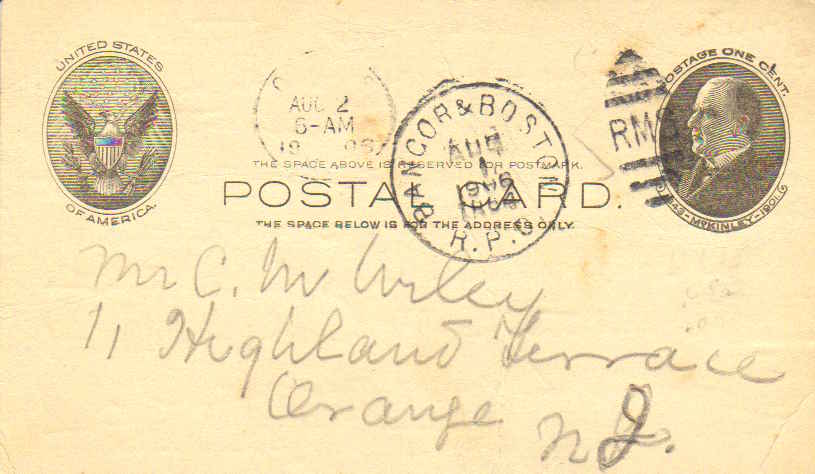 UNITED STATES
OF AMERICA.
AUG 2
6-AM
1906
BANGOR & BOSTON
AUG
1
1906
R.P.O.
RMS
POSTAGE ONE CENT.
1843-McKINLEY-1901.
THE SPACE ABOVE IS RESERVED FOR POSTMARK.
POSTAL CARD.
THE SPACE BELOW IS FOR THE ADDRESS ONLY.
Mr C. M Wiley
11 Highland Terrace
Orange
N J.